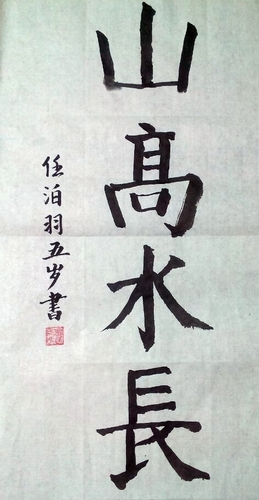 山髙水長
任泊羽五岁書